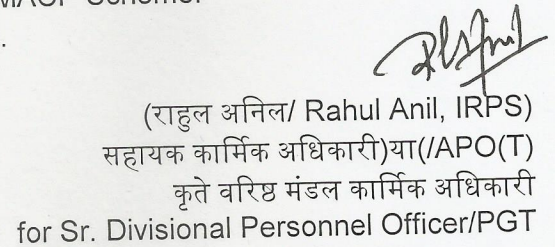 MACP Scheme.
(राहुल अनिल/ Rahul Anil, IRPS)
सहायक कार्मिक अधिकारी)या(/APO(T)
कृते वरिष्ठ मंडल कार्मिक अधिकारी
for Sr. Divisional Personnel Officer/PGT